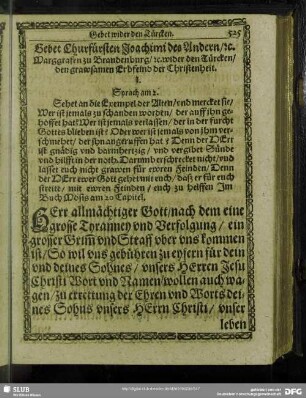 Gebet wider den Türcken. 525
Gebet Churfürsten Joachimi des Andern/ꝛc.
Marggrafen zu Brandenburg/ ꝛc. wider den Türcken/
den grawsamen Erbfeind der Christenheit.
1.
Syrach am 2.
Sehet an die Exempel der Alten/vnd mercket sie/
Wer ist jemals zu schanden worden/ der auff ihn ge-
hoffet hat? Wer ist jemals verlassen/ der in der furcht
Gottes blieben ist? Oder wer ist jemals von jhm ver-
schmehet/ der jhn angeruffen hat? Denn der HErr
ist gnädig vnd barmhertzig/ vnd vergibet Sünde
vnd hilfft in der noth. Darumb erschrecket nicht/ vnd
lasset euch nicht grawen für ewren Feinden/ Denn
der HErr ewer Gott gehet mit euch/ daß er für euch
streite/ mit ewren Feinden/ euch zu helffen Im
Buch Mosis am 20 Capitel.
HErr allmächtiger Gott/nach dem eine
grosse Tyranney vnd Verfolgung/ ein
grosser Grim̃ vnd Straff vber vns kommen
ist/ So wil vns gebühren zu eyfern für dein
vnd deines Sohnes/ vnsers HErren Jesu
Christi Wort vnd Namen/wollen auch wa-
gen/ zu errettung der Ehren vnd Worts dei-
nes Sohns vnsers HErrn Christi/ vnser
leben
SLUB